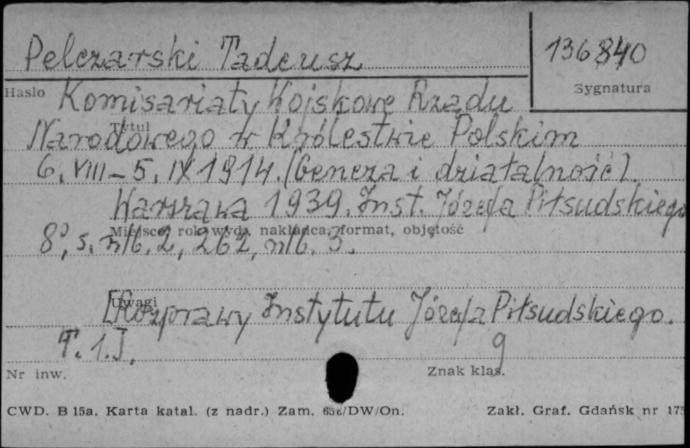 Pelczarski Tadeusz
136840
Sygnatura
Hasło
Komisariaty Wojskowe Rządu
Tytuł
Narodowego w Królestwie Polskim
6. VIII – 5. IX 1914. (Geneza i działalność).
Warszawa 1939. Inst. Józefa Piłsudskiego
Miejsce, rok wyd., nakładca, format, objętość
8°, s. nlb. 2, 262, nlb. 3.
Uwagi
[Rozprawy Instytutu Józefa Piłsudskiego.
T. 1.].
9
Nr inw.
Znak klas.
CWD. B 15a. Karta katal. (z nadr.) Zam. /DW/On.
Zakł. Graf. Gdańsk nr